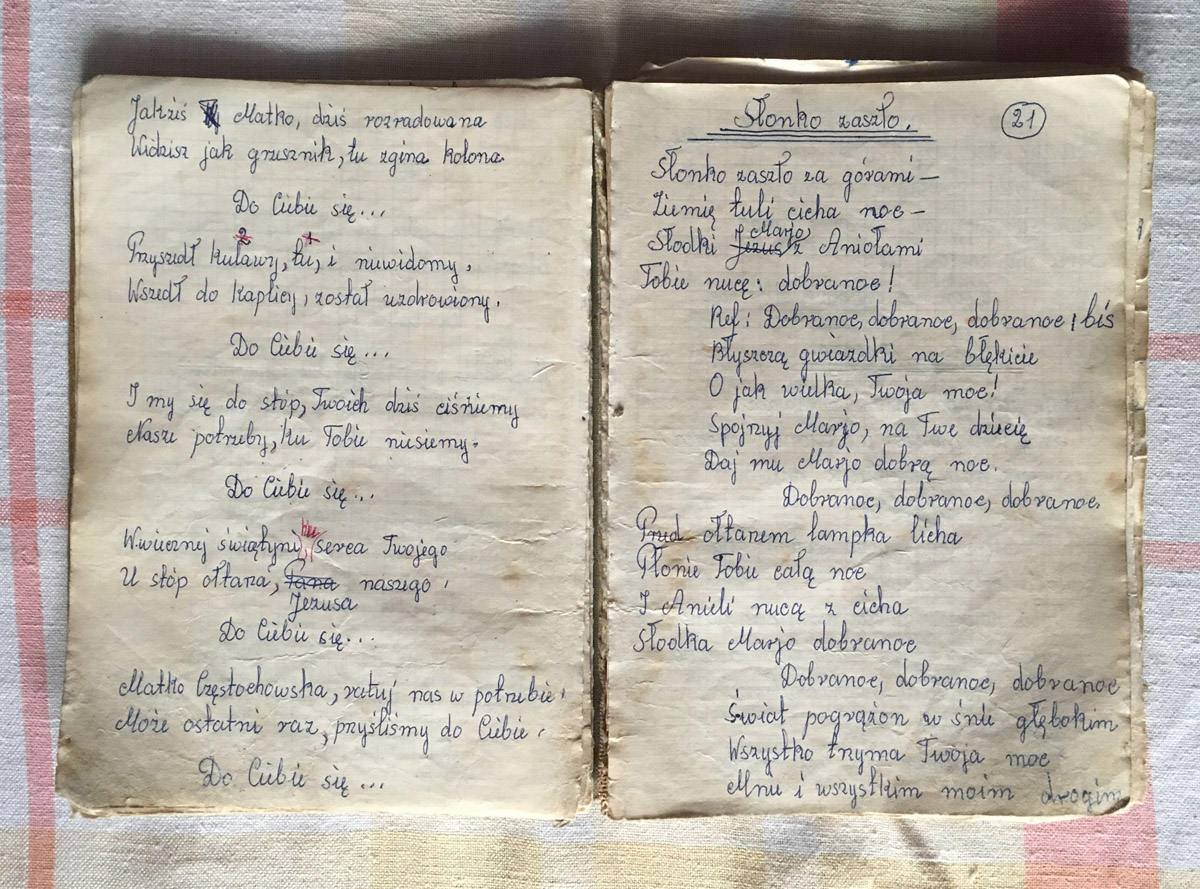 Jakżiś Matko, dziś rozradowana
Widzisz jak grzesznik, tu zgina kolana
Do Ciebie się...
2 1
Przyszedł kulawy, tu, i niewidomy,
Wszedł do kaplicy, został uzdrowiony.
Do Ciebie się...
I my się do stóp, Twoich dziś ciśniemy
Nasze potrzeby, ku Tobie niesiemy.
Do Ciebie się...
W wiecznej świątyni, serca Twojego
U stóp ołtarza, Pana naszego,
Jezusa
Do Ciebie się...
Matko Częstochowska, ratuj nas w potrzebie,
Może ostatni raz, przyśliśmy do Ciebie,
Do Ciebie się...
Słonko zaszło.
21
Słonko zaszło za górami —
Ziemię tuli cicha noc —
Marjo
Słodki Jezus, z Aniołami
Tobie nucę: dobranoc!
Ref: Dobranoc, dobranoc, dobranoc, bis
Błyszczą gwiazdki na błękicie
O jak wielka, Twoja moc!
Spojrzyj Marjo, na Twe dziecię
Daj mu Marjo dobrą noc.
Dobranoc, dobranoc, dobranoc.
Przed ołtarem lampka licha
Płonie Tobie całą noc
I Anieli nucą z cicha
Słodka Marjo dobranoc
Dobranoc, dobranoc, dobranoc
Świat pogrążon w śnie głębokim
Wszystko trzyma Twoja moc
Mnie i wszystkim moim drogim